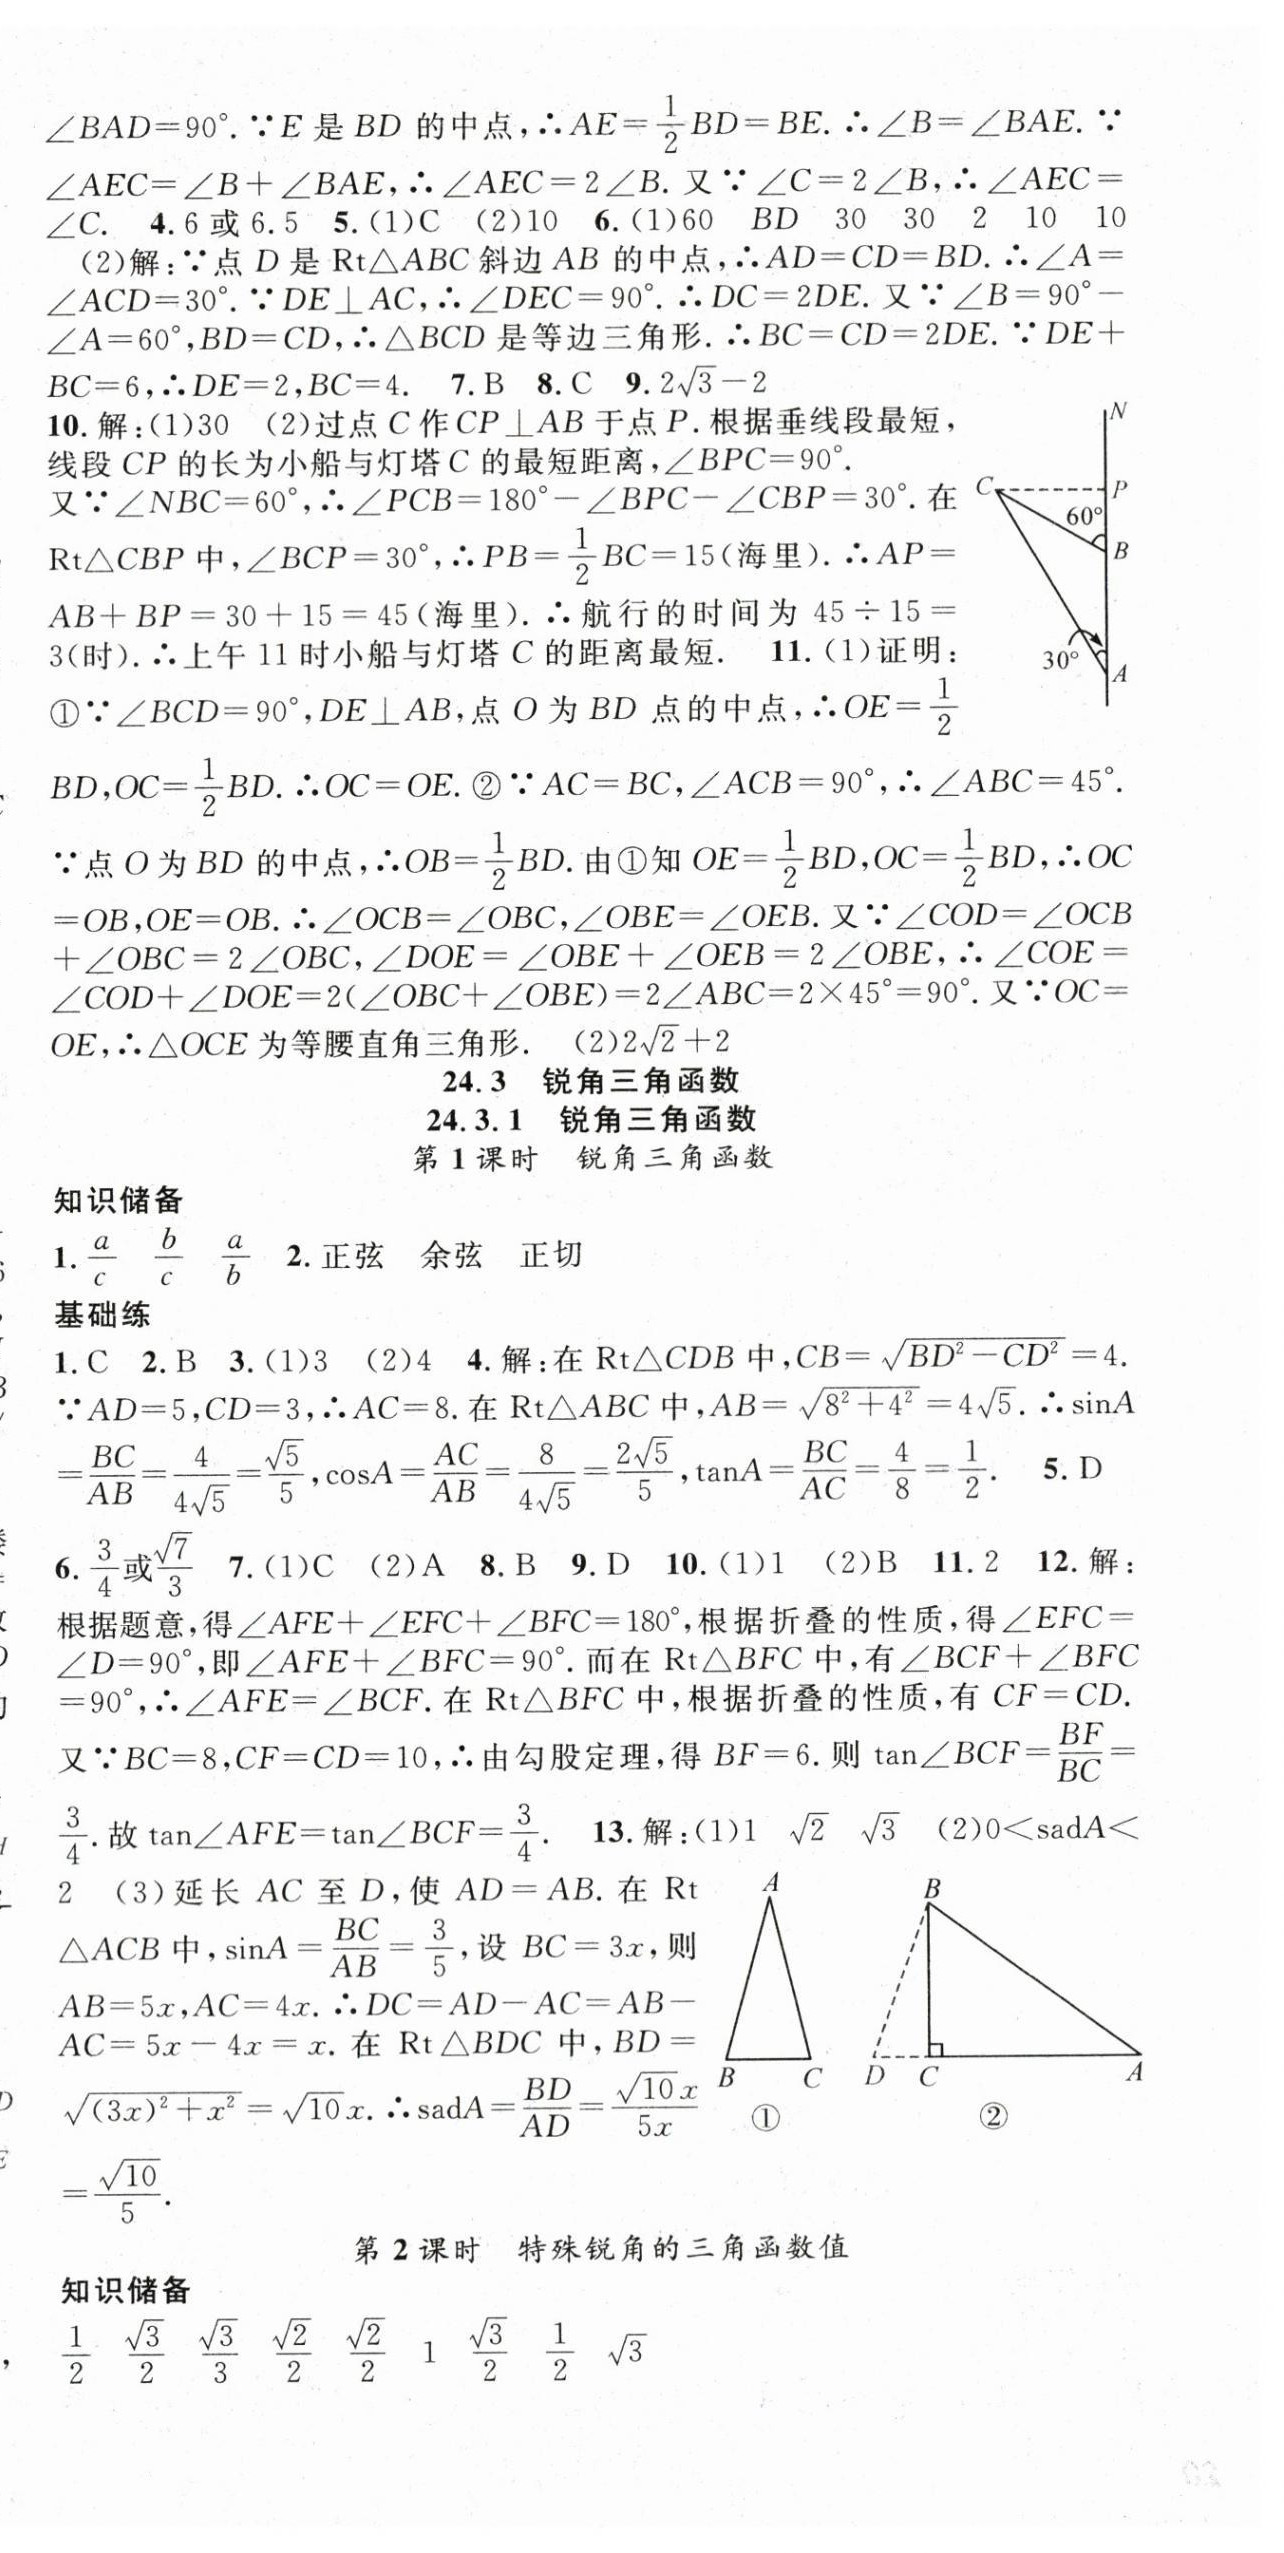 ∠BAD=90°.∵E 是 BD 的中点,∴AE=1/2BD=BE.∴∠B=∠BAE.∵
∠AEC=∠B+∠BAE,∴∠AEC=2∠B.又∵∠C=2∠B,∴∠AEC=
∠C. 4.6 或 6.5 5.(1)C (2)10 6.(1)60 BD 30 30 2 10 10
(2)解:∵点 D 是 Rt△ABC 斜边 AB 的中点,∴AD=CD=BD.∴∠A=
∠ACD=30°.∵DE⊥AC,∴∠DEC=90°.∴DC=2DE.又∵∠B=90°-
∠A=60°,BD=CD,∴△BCD 是等边三角形.∴BC=CD=2DE.∵DE+
BC=6,∴DE=2,BC=4. 7.B 8.C 9.2√3-2
10.解:(1)30 (2)过点 C 作 CP⊥AB 于点 P.根据垂线段最短,
线段 CP 的长为小船与灯塔 C 的最短距离,∠BPC=90°.
又∵∠NBC=60°,∴∠PCB=180°-∠BPC-∠CBP=30°.在
Rt△CBP 中,∠BCP=30°,∴PB=1/2BC=15(海里).∴AP=
AB+BP=30+15=45(海里).∴航行的时间为 45÷15=
3(时).∴上午 11 时小船与灯塔 C 的距离最短. 11.(1)证明:
①∵∠BCD=90°,DE⊥AB,点 O 为 BD 点的中点,∴OE=1/2
N
C
P
60°
B
30°
A
BD,OC=1/2BD.∴OC=OE.②∵AC=BC,∠ACB=90°,∴∠ABC=45°.
∵点 O 为 BD 的中点,∴OB=1/2BD.由①知 OE=1/2BD,OC=1/2BD,∴OC
=OB,OE=OB.∴∠OCB=∠OBC,∠OBE=∠OEB.又∵∠COD=∠OCB
+∠OBC=2∠OBC,∠DOE=∠OBE+∠OEB=2∠OBE,∴∠COE=
∠COD+∠DOE=2(∠OBC+∠OBE)=2∠ABC=2×45°=90°.又∵OC=
OE,∴△OCE 为等腰直角三角形. (2)2√2+2
24.3 锐角三角函数
24.3.1 锐角三角函数
第 1 课时 锐角三角函数
知识储备
1.a/c b/c a/b 2.正弦 余弦 正切
基础练
1.C 2.B 3.(1)3 (2)4 4.解:在 Rt△CDB 中,CB=√(BD²-CD²)=4.
∵AD=5,CD=3,∴AC=8.在 Rt△ABC 中,AB=√(8²+4²)=4√5.∴sinA
=BC/AB=4/(4√5)=√5/5,cosA=AC/AB=8/(4√5)=2√5/5,tanA=BC/AC=4/8=1/2. 5.D
6.3/4或√7/3 7.(1)C (2)A 8.B 9.D 10.(1)1 (2)B 11.2 12.解:
根据题意,得∠AFE+∠EFC+∠BFC=180°,根据折叠的性质,得∠EFC=
∠D=90°,即∠AFE+∠BFC=90°.而在 Rt△BFC 中,有∠BCF+∠BFC
=90°,∴∠AFE=∠BCF.在 Rt△BFC 中,根据折叠的性质,有 CF=CD.
又∵BC=8,CF=CD=10,∴由勾股定理,得 BF=6.则 tan∠BCF=BF/BC=
3/4.故 tan∠AFE=tan∠BCF=3/4. 13.解:(1)1 √2 √3 (2)0<sadA<
2 (3)延长 AC 至 D,使 AD=AB.在 Rt
△ACB 中,sinA=BC/AB=3/5,设 BC=3x,则
AB=5x,AC=4x.∴DC=AD-AC=AB-
AC=5x-4x=x.在 Rt△BDC 中,BD=
√((3x)²+x²)=√10x.∴sadA=BD/AD=√10x/5x
=√10/5.
A
B C
①
B
D C A
②
第 2 课时 特殊锐角的三角函数值
知识储备
1/2 √3/2 √3/3 √2/2 √2/2 1 √3/2 1/2 √3